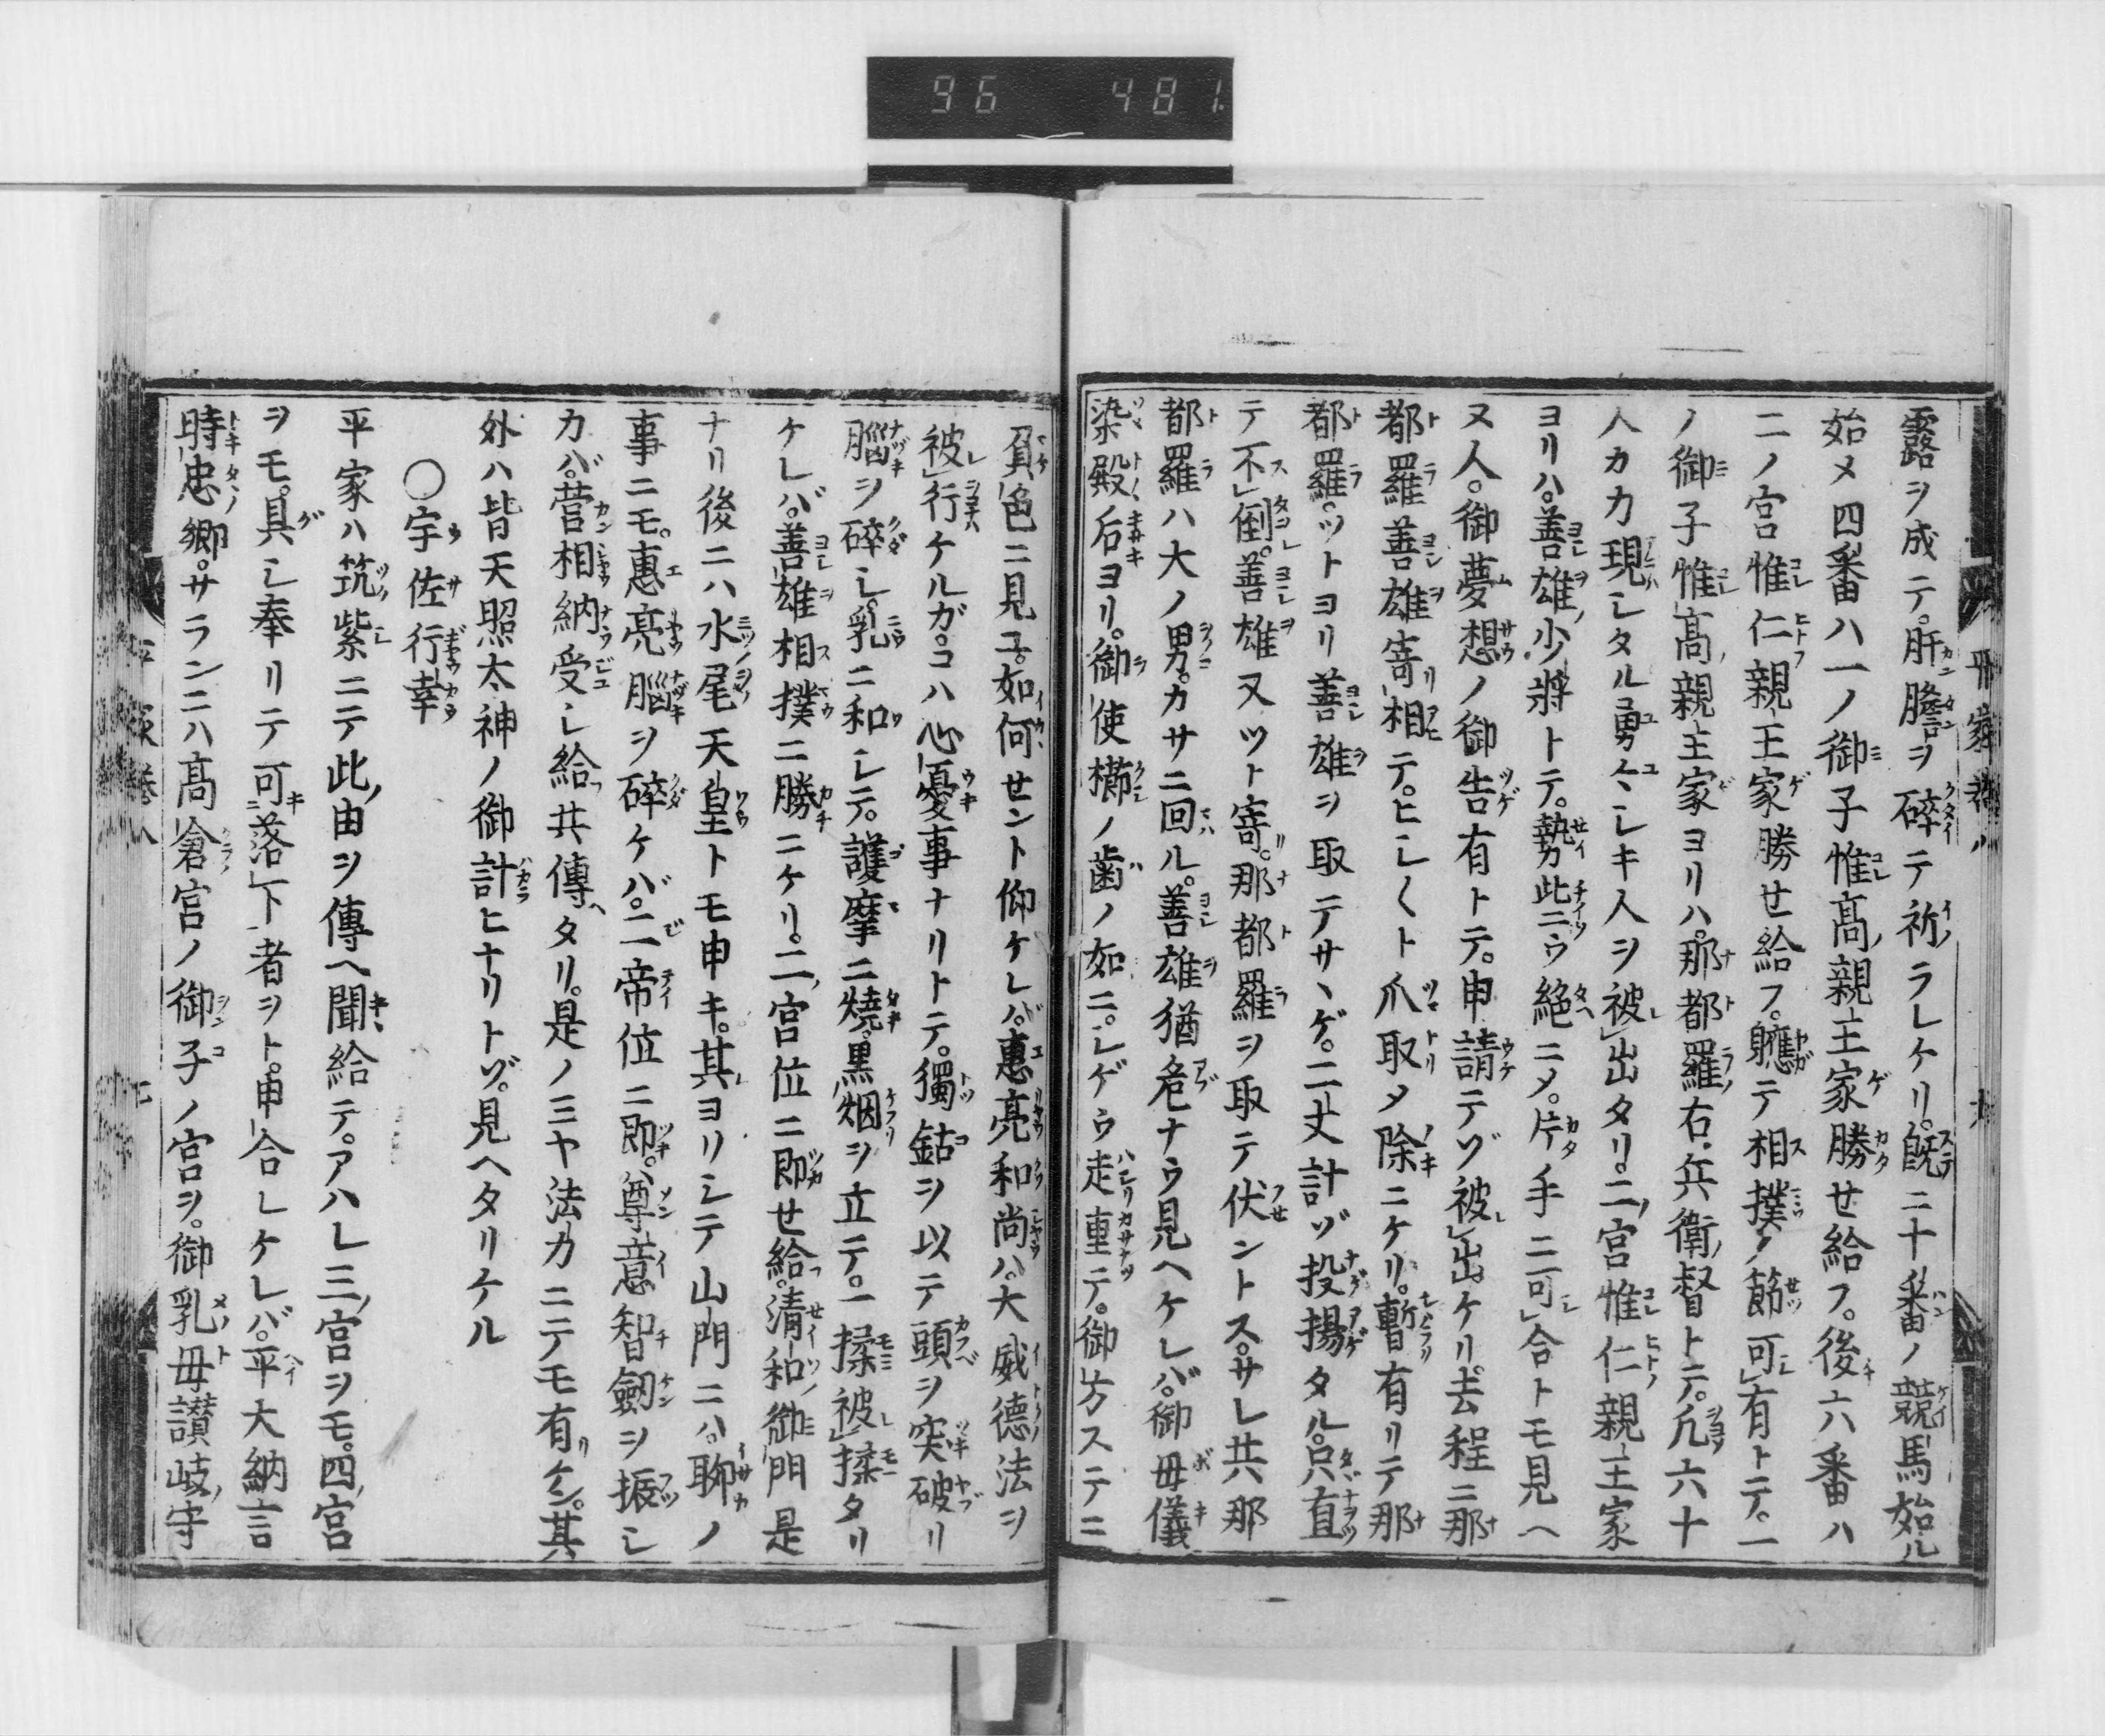 96 481.
露ヲ成テ。肝膽ヲ碎テ祈ラレケリ。既ニ十番ノ競馬始ル
始メ四番ハ一ノ御子惟髙親王家勝せ給フ。後六番ハ
二ノ宮惟仁親王家勝せ給フ。軈テ相撲ノ節可有トテ。一
ノ御子惟髙親王家ヨリハ。那都羅右兵衛督トテ。凢六十
人カ力現シタル勇々シキ人ヲ被出タリ。二宮惟仁親王家
ヨリハ。善雄少將トテ。勢此ニウ絶ニメ。片手ニ可合トモ見ヘ
ヌ人。御夢想ノ御告有トテ。申請テゾ被出ケリ。去程ニ那
都羅善雄寄相テ。ヒシ〱ト爪取メ除ニケリ。暫有リテ那
都羅。ツトヨリ善雄ヲ取テサヽゲ。二丈計ゾ投揚タル。只直
テ不倒。善雄又ツト寄。那都羅ヲ取テ伏ントス。サレ共那
都羅ハ大ノ男。カサニ回ル。善雄猶危ナウ見ヘケレバ。御毋儀
染殿ノ后ヨリ。御使櫛ノ歯ノ如ニ。シゲウ走重テ。御方ステニ
負色ニ見ユ。如何せント仰ケレバ。惠亮和尚ハ。大威德法ヲ
被行ケルガ。コハ心憂事ナリトテ。獨鈷ヲ以テ頭ヲ突破リ
腦ヲ碎シ。乳ニ和シテ。護摩ニ燒。黒烟ヲ立テ。一揉被揉タリ
ケレバ。善雄相撲ニ勝ニケリ。二宮位ニ即せ給。淸和御門是
ナリ後ニハ水尾天皇トモ申キ。其ヨリシテ山門ニハ。聊ノ
事ニモ。惠亮腦ヲ碎ケバ。二帝位ニ即。尊意智劔ヲ振シ
カバ。菅相納受シ給共傳タリ。是ノミヤ法力ニテモ有ケン。其
外ハ皆天照太神ノ御計ヒナリトゾ。見ヘタリケル
〇宇佐行幸
平家ハ筑紫ニテ此由ヲ傳ヘ聞給テ。アハレ三宮ヲモ。四宮
ヲモ。具シ奉リテ可落下者ヲト。申合レケレバ。平大納言
時忠卿。サランニハ髙倉宮ノ御子ノ宮ヲ。御乳毋讃岐守